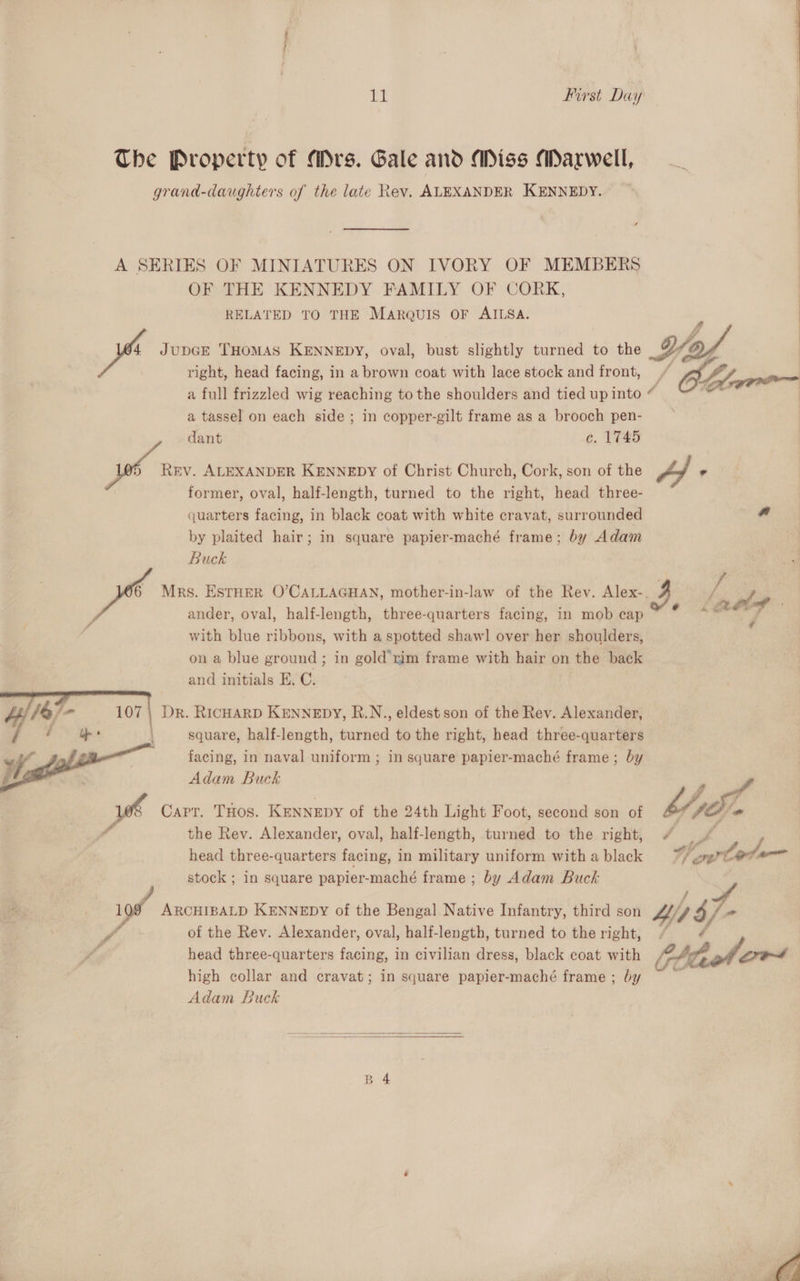 11 First Day
The Property of Mrs. Gale and Miss Maxwell,
grand-daughters of the late Rev. ALEXANDER KENNEDY.
A SERIES OF MINIATURES ON IVORY OF MEMBERS
OF THE KENNEDY FAMILY OF CORK,
RELATED TO THE MARQUIS OF AILSA.
104 JUDGE THOMAS KENNEDY, oval, bust slightly turned to the
right, head facing, in a brown coat with lace stock and front,
a full frizzled wig reaching to the shoulders and tied up into
a tassel on each side; in copper-gilt frame as a brooch pen-
dant c. 1745
105 REV. ALEXANDER KENNEDY of Christ Church, Cork, son of the
former, oval, half-length, turned to the right, head three-
quarters facing, in black coat with white cravat, surrounded
by plaited hair; in square papier-maché frame; by Adam
Buck
106 MRS. ESTHER O'CALLAGHAN, mother-in-law of the Rev. Alex-
ander, oval, half-length, three-quarters facing, in mob cap
with blue ribbons, with a spotted shawl over her shoulders,
on a blue ground; in gold rim frame with hair on the back
and initials E. C.
107 DR. RICHARD KENNEDY, R.N., eldest son of the Rev. Alexander,
square, half-length, turned to the right, head three-quarters
facing, in naval uniform; in square papier-maché frame; by
Adam Buck
108 CAPT. THOS. KENNEDY of the 24th Light Foot, second son of
the Rev. Alexander, oval, half-length, turned to the right,
head three-quarters facing, in military uniform with a black
stock; in square papier-maché frame; by Adam Buck
109 ARCHIBALD KENNEDY of the Bengal Native Infantry, third son
of the Rev. Alexander, oval, half-length, turned to the right,
head three-quarters facing, in civilian dress, black coat with
high collar and cravat; in square papier-maché frame; by
Adam Buck
B 4